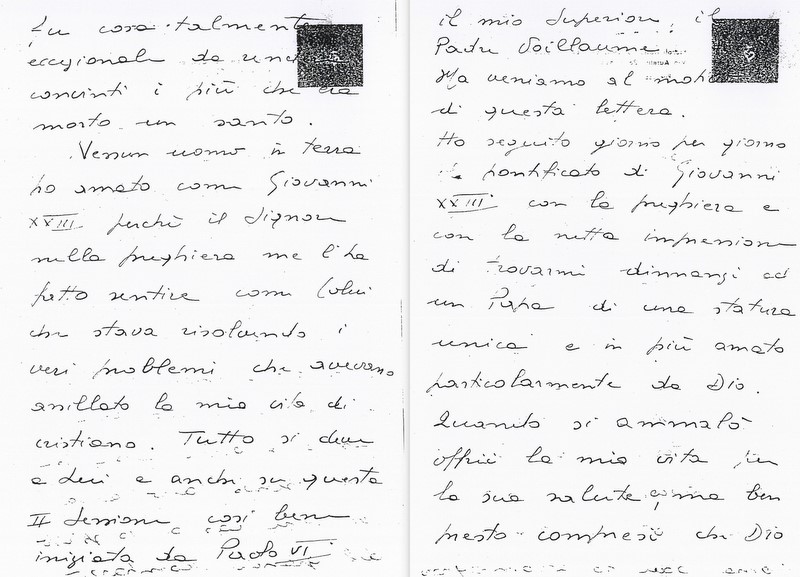 Fu cosa talmente
eccezionale da
convinti i più che era
morto un santo.
Nessun uomo in terra
ho amato come Giovanni
XXIII perché il Signore
nella preghiera me l'ha
fatto sentire come Colui
che stava risolvendo i
veri problemi che avevano
assillato la mia vita di
cristiano. Tutto si deve
a Lui e anche su questa
II Sessione così bene
iniziata da Paolo VI
il mio Superiore, il
Padre Voillaume.
Ma veniamo al motivo
di questa lettera.
Ho seguito giorno per giorno
il pontificato di Giovanni
XXIII con la preghiera e
con la netta impressione
di trovarmi dinnanzi ad
un Papa di una statura
unica e in più amato
particolarmente da Dio.
Quando si ammalò
offrii la mia vita per
la sua salute, ma ben
presto compresi che Dio